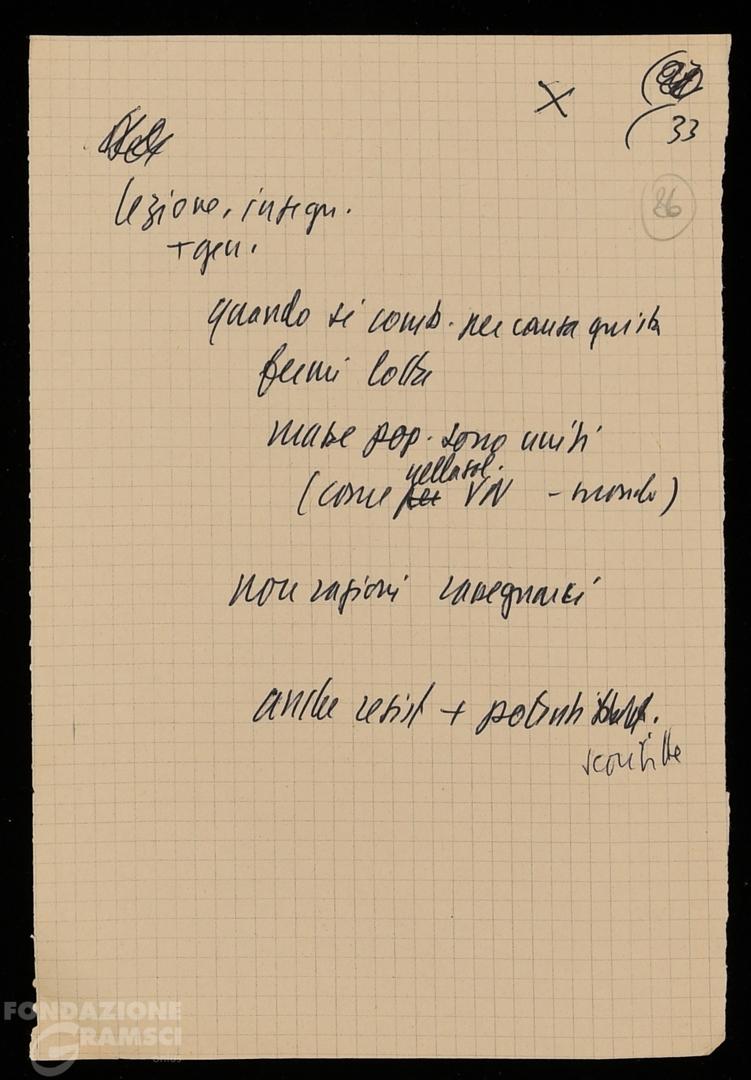 X
33
86
lezione, insegn.
+ gen.
quando si comb. per causa giusta
fermi lotta
masse pop. sono uniti
nella sol.
(come per VN - mondo)
non ragioni rassegnarci
anche resist + potenti
sconfitte
FONDAZIONE
GRAMSCI
onlus